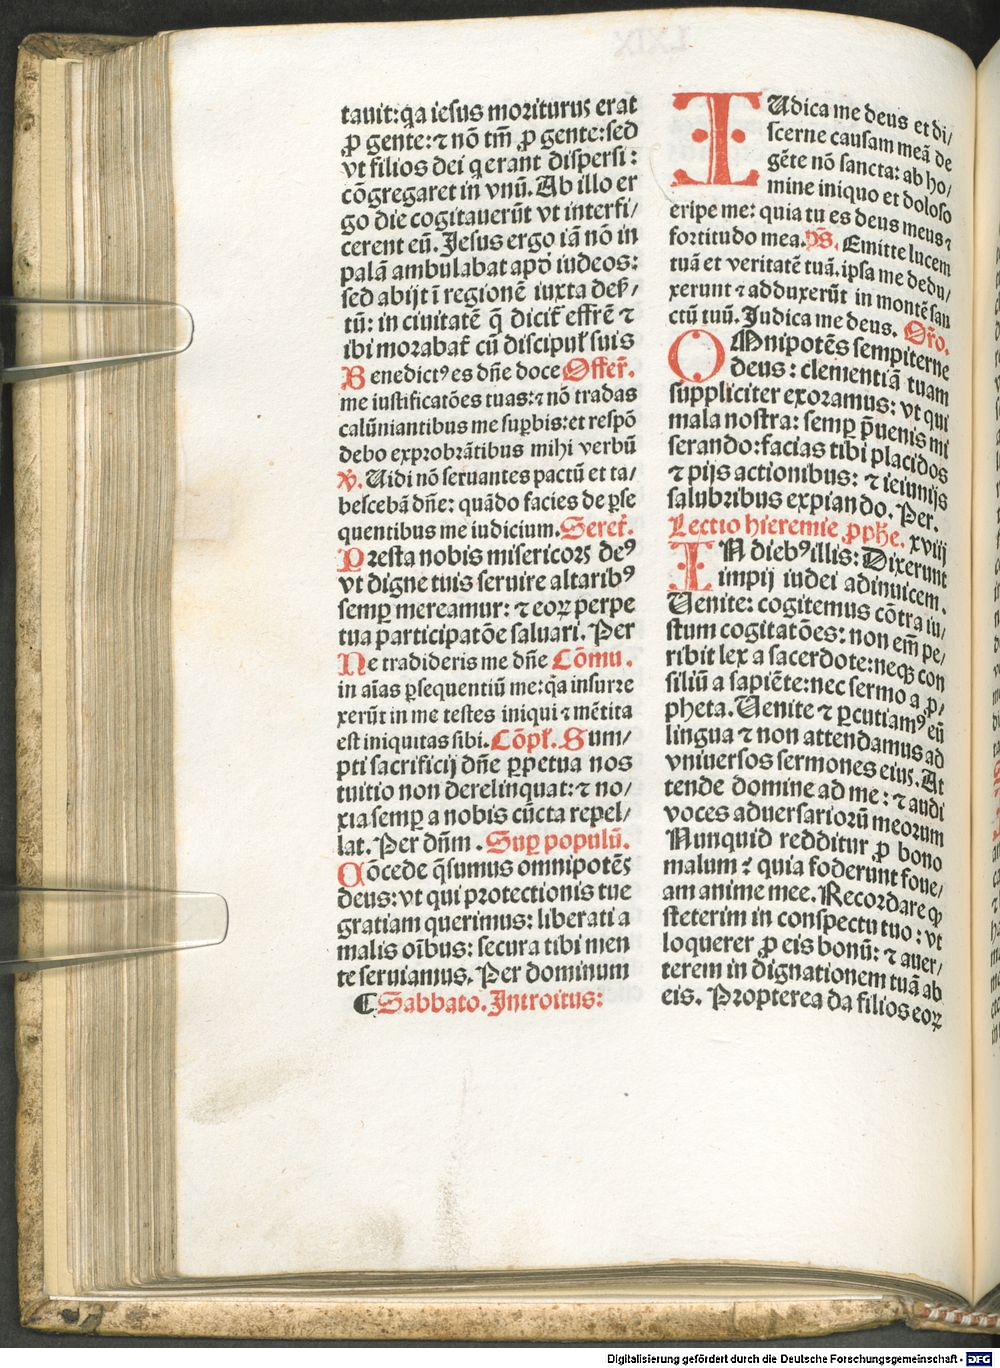 tauit: qa iesus moriturus erat
ꝓ gente: ⁊ nō tm̄ ꝓ gente: sed
vt filios dei q erant dispersi:
cōgregaret in vnū. Ab illo er
go die cogitauerūt vt interfi/
cerent eū. Jesus ergo iā nō in
palā ambulabat apď iudeos:
sed abijt ī regionē iuxta deẜ/
tū: in ciuitatē q̄ dicit̄ effrē ⁊
ibi morabat̄ cū discipul̛ suis
Benedictꝰ es dn̄e doce Offer̄.
me iustificatōes tuas: ⁊ nō tradas
calūniantibus me suꝑbis: et respō
debo exprobrātibus mihi verbū
℣. Uidi nō seruantes pactū et ta/
bescebā dn̄e: quādo facies de ꝑse
quentibus me iudicium. Secret̄.
Presta nobis misericors deꝰ
vt digne tuis seruire altaribꝰ
semꝑ mereamur: ⁊ eoꝝ perpe
tua participatōe saluari. Per
Ne tradideris me dn̄e Cōmu.
in aīas ꝑsequentiū me: q̄a insurre
xerūt in me testes iniqui ⁊ mētita
est iniquitas sibi. Cōpl̄. Sum/
pti sacrificij dn̄e ꝑpetua nos
tuitio non derelinquat: ⁊ no/
xia semꝑ a nobis cūcta repel/
lat. Per dn̄m. Suꝑ populū.
Cōcede q̄sumus omnipotēs
deus: vt qui protectionis tue
gratiam querimus: liberati a
malis oībus: secura tibi men
te seruiamus. Per dominum
¶ Sabbato. Introitus:
IUdica me deus et di/
scerne causam meā de
gēte nō sancta: ab ho/
mine iniquo et doloso
eripe me: quia tu es deus meus ⁊
fortitudo mea. p̄s. Emitte lucem
tuā et veritatē tuā. ipsa me dedu/
xerunt ⁊ adduxerūt in montē san
ctū tuū. Judica me deus. Oro̅.
OMnipotēs sempiterne
deus: clementiā tuam
suppliciter exoramus: vt qui
mala nostra: semꝑ p̄uenis mi
serando: facias tibi placidos
⁊ pijs actionibus: ⁊ ieiunijs
salubribus expiando. Per.
Lectio hieremie ꝓph̄e. xviij
IN diebꝰ illis: Dixerunt
impij iudei adinuicem.
Uenite: cogitemus cōtra iu/
stum cogitatōes: non em̄ pe/
ribit lex a sacerdote: neqꝫ con
siliū a sapiēte: nec sermo a ꝓ/
pheta. Uenite ⁊ ꝑcutiamꝰ eū
lingua ⁊ non attendamus ad
vniuersos sermones eius. At
tende domine ad me: ⁊ audi
voces aduersariorū meorum
Nunquid redditur ꝓ bono
malum? quia foderunt foue/
am anime mee. Recordare ꝙ
steterim in conspectu tuo: vt
loquerer ꝓ eis bonū: ⁊ auer/
terem in dignationem tuā ab
eis. Propterea da filios eoꝝ
Digitalisierung gefördert durch die Deutsche Forschungsgemeinschaft - DFG